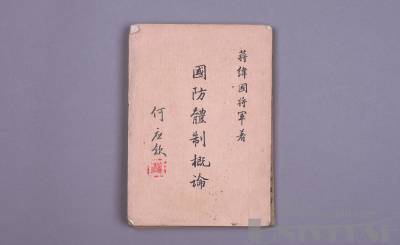 蔣緯國將軍著
國防體制概論
何應欽